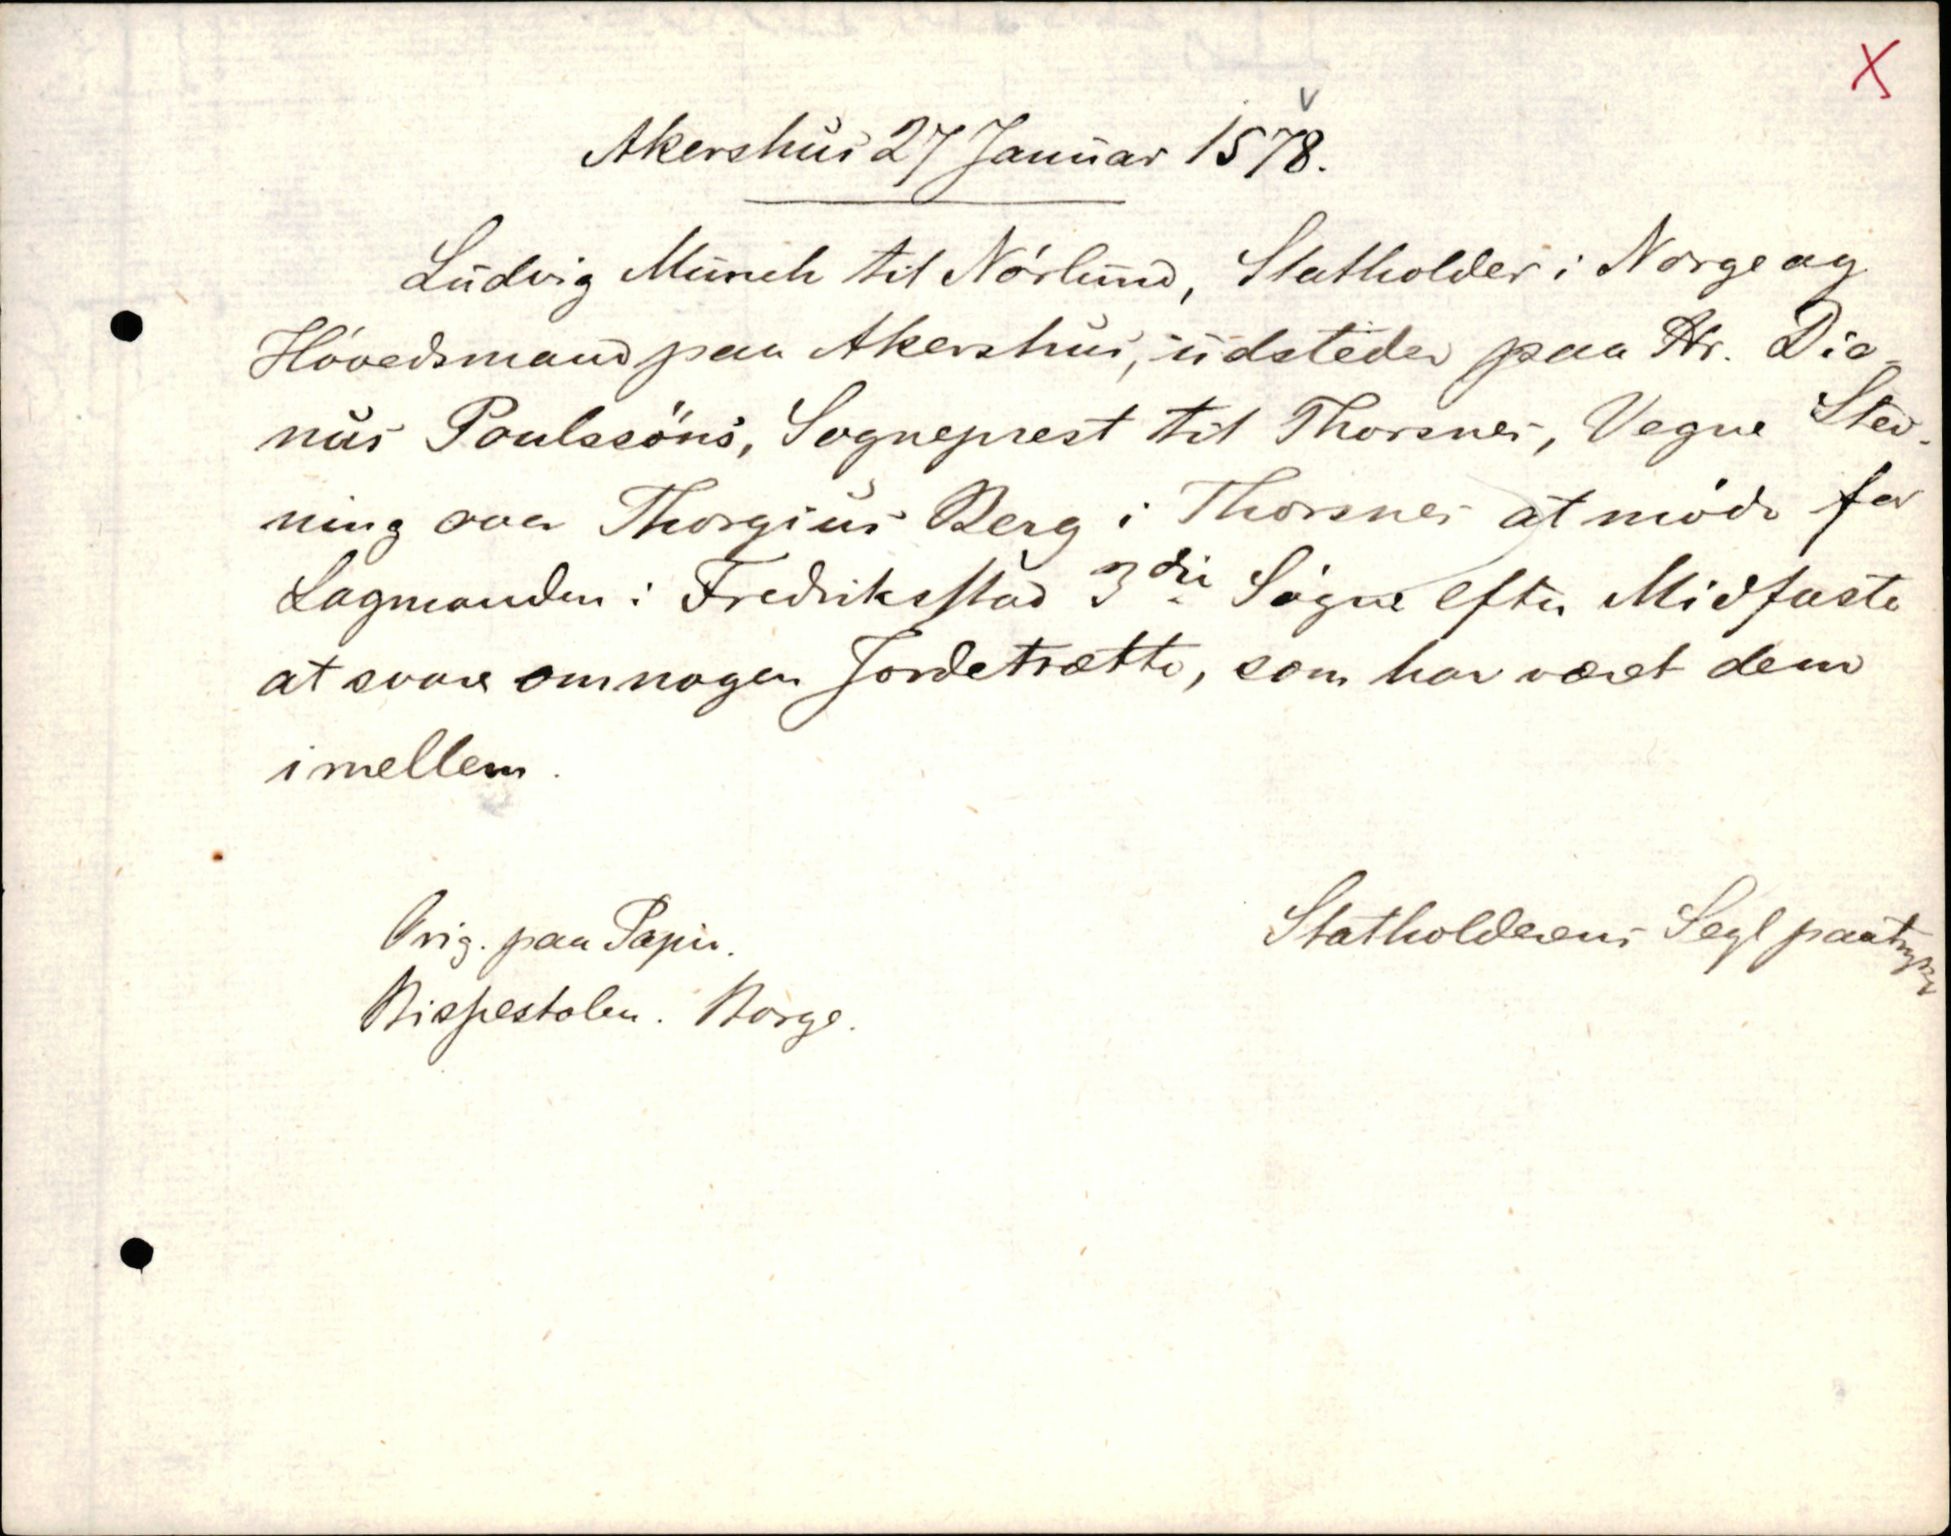 X
v
Akershus 27 Januar 1578.
Ludvig Munch til Nórlund, Statholder i Norge og
Hóvedsmand paa Akershus, udsteder paa Hr. Dio-
nus Poulssöns, Sogneprest til Thorsnes, Vegne Stev-
ning over Thorgius Berg i Thorsnes at móde for
Lagmanden i Fredriksstad 3die Sógne efter Midfaste
at svare om nogen Jordetrætte, som har været dem
imellem.
Orig. paa Papir.
Statholderens Segl paatrykt
Bispestolen. Borge.